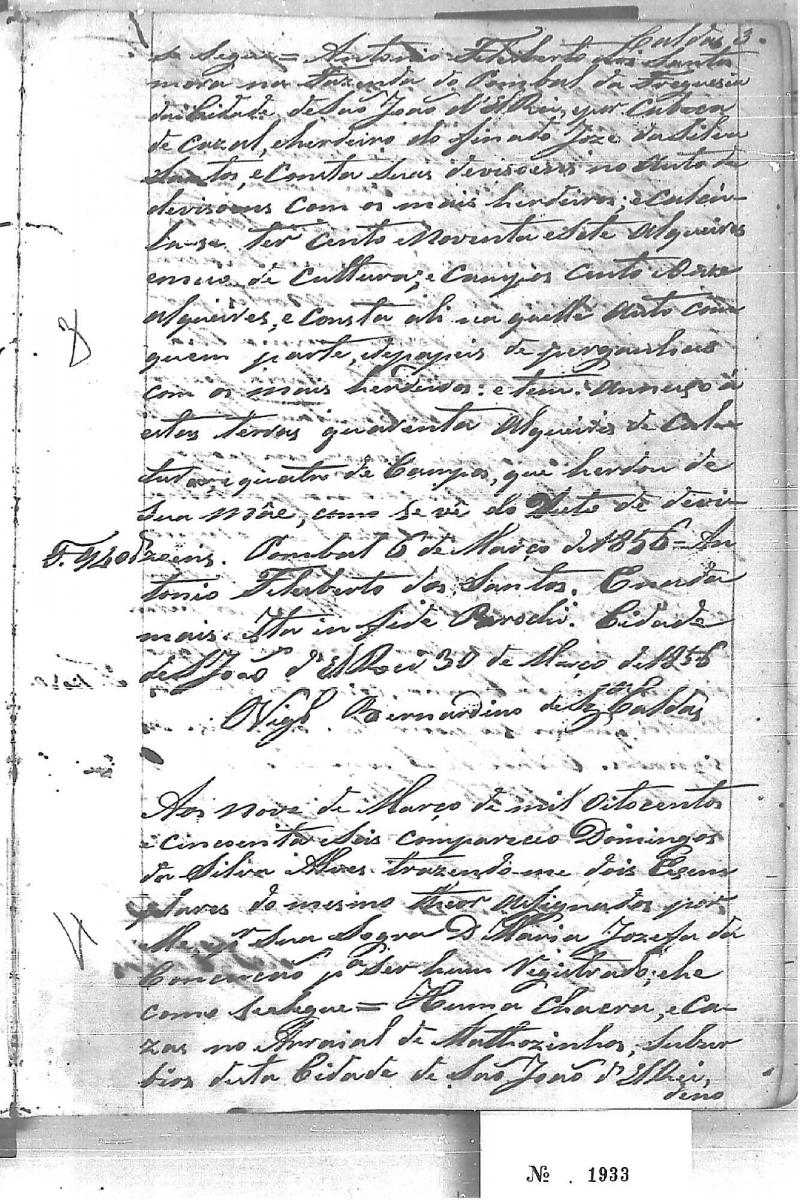 Caldas 3.
se segue = Antonio Filisberto dos Santos
mora na Fazenda do Pombal da Freguesia
da Cidade de São João d'ElRei, por Cabeca
de cazal, e herdeiro do finado Joze da Silva
Santos, e consta suas devisoens no auto de
devisoens com os mais herdeiros; e calcu-
la-se ter cento e noventa e sete alqueires
e meio de cultura; e campos cento e doze
alqueires, e consta ali na quelle auto com
quem parte, e papeis de
com os mais herdeiros: e tem annexo á
estas terras quarenta alqueires de cul-
tura, e quatro de Campos, que herdou de
sua mãe, como se vê do Auto de devi-
zoens. Pombal 6 de Março de 1856 = An
tonio Filisberto dos Santos. E nada
mais. Ita in fide Parochi. Cidade
de S. João d'ElRei 30 de Março de 1856
O Vigro. Bernardino de Sza. Caldas
Aos nove de Março de mil oitocentos
e cincoenta e seis compareceo Domingos
da Silva Alves trazendo-me dois Exem
plares do mesmo theor assignados por
elle, pr. sua Sogra D. Maria Jozefa da
Conceicaõ pa. ser hum registrado; e he
como se segue = Huma Chacra, e ca-
zas no Arraial de Mattozinhos, subur
bios desta Cidade de Saõ Joaõ d'ElRei,
deno
Nº . 1933